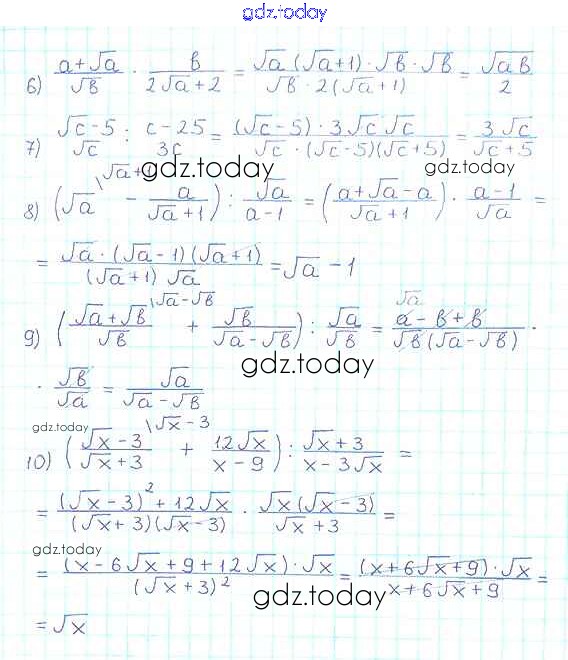 gdz.today
6) (a+√a)/√b · b/(2√a+2) = (√a(√a+1)·√b·√b)/(√b·2(√a+1)) = √ab/2
7) (√c-5)/√c : (c-25)/3c = ((√c-5)·3√c√c)/(√c·(√c-5)(√c+5)) = 3√c/(√c+5)
gdz.today gdz.today
8) (√a \√a+1 - a/(√a+1)) : √a/(a-1) = ((a+√a-a)/(√a+1)) · (a-1)/√a =
= (√a·(√a-1)(√a+1))/((√a+1)√a) = √a-1
9) ((√a+√b)/√b \√a-√b + √b/(√a-√b)) : √a/√b = (a-b+b)/(√b(√a-√b)) √a ·
gdz.today
· √b/√a = √a/(√a-√b)
gdz.today
10) ((√x-3)/(√x+3) \√x-3 + 12√x/(x-9)) : (√x+3)/(x-3√x) =
= ((√x-3)²+12√x)/((√x+3)(√x-3)) · (√x(√x-3))/(√x+3) =
gdz.today
= ((x-6√x+9+12√x)·√x)/(√x+3)² = ((x+6√x+9)·√x)/(x+6√x+9) =
gdz.today
= √x